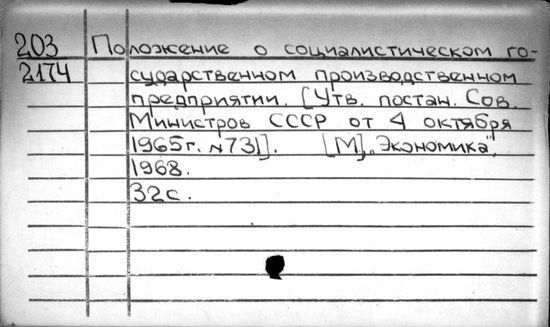 203 Положение о социалистическом го-
2174 сударственном производственном
предприятии. [Утв. постан. Сов.
Министров СССР от 4 октября
1965г. №731]. [М], "Экономика",
1968.
32с.